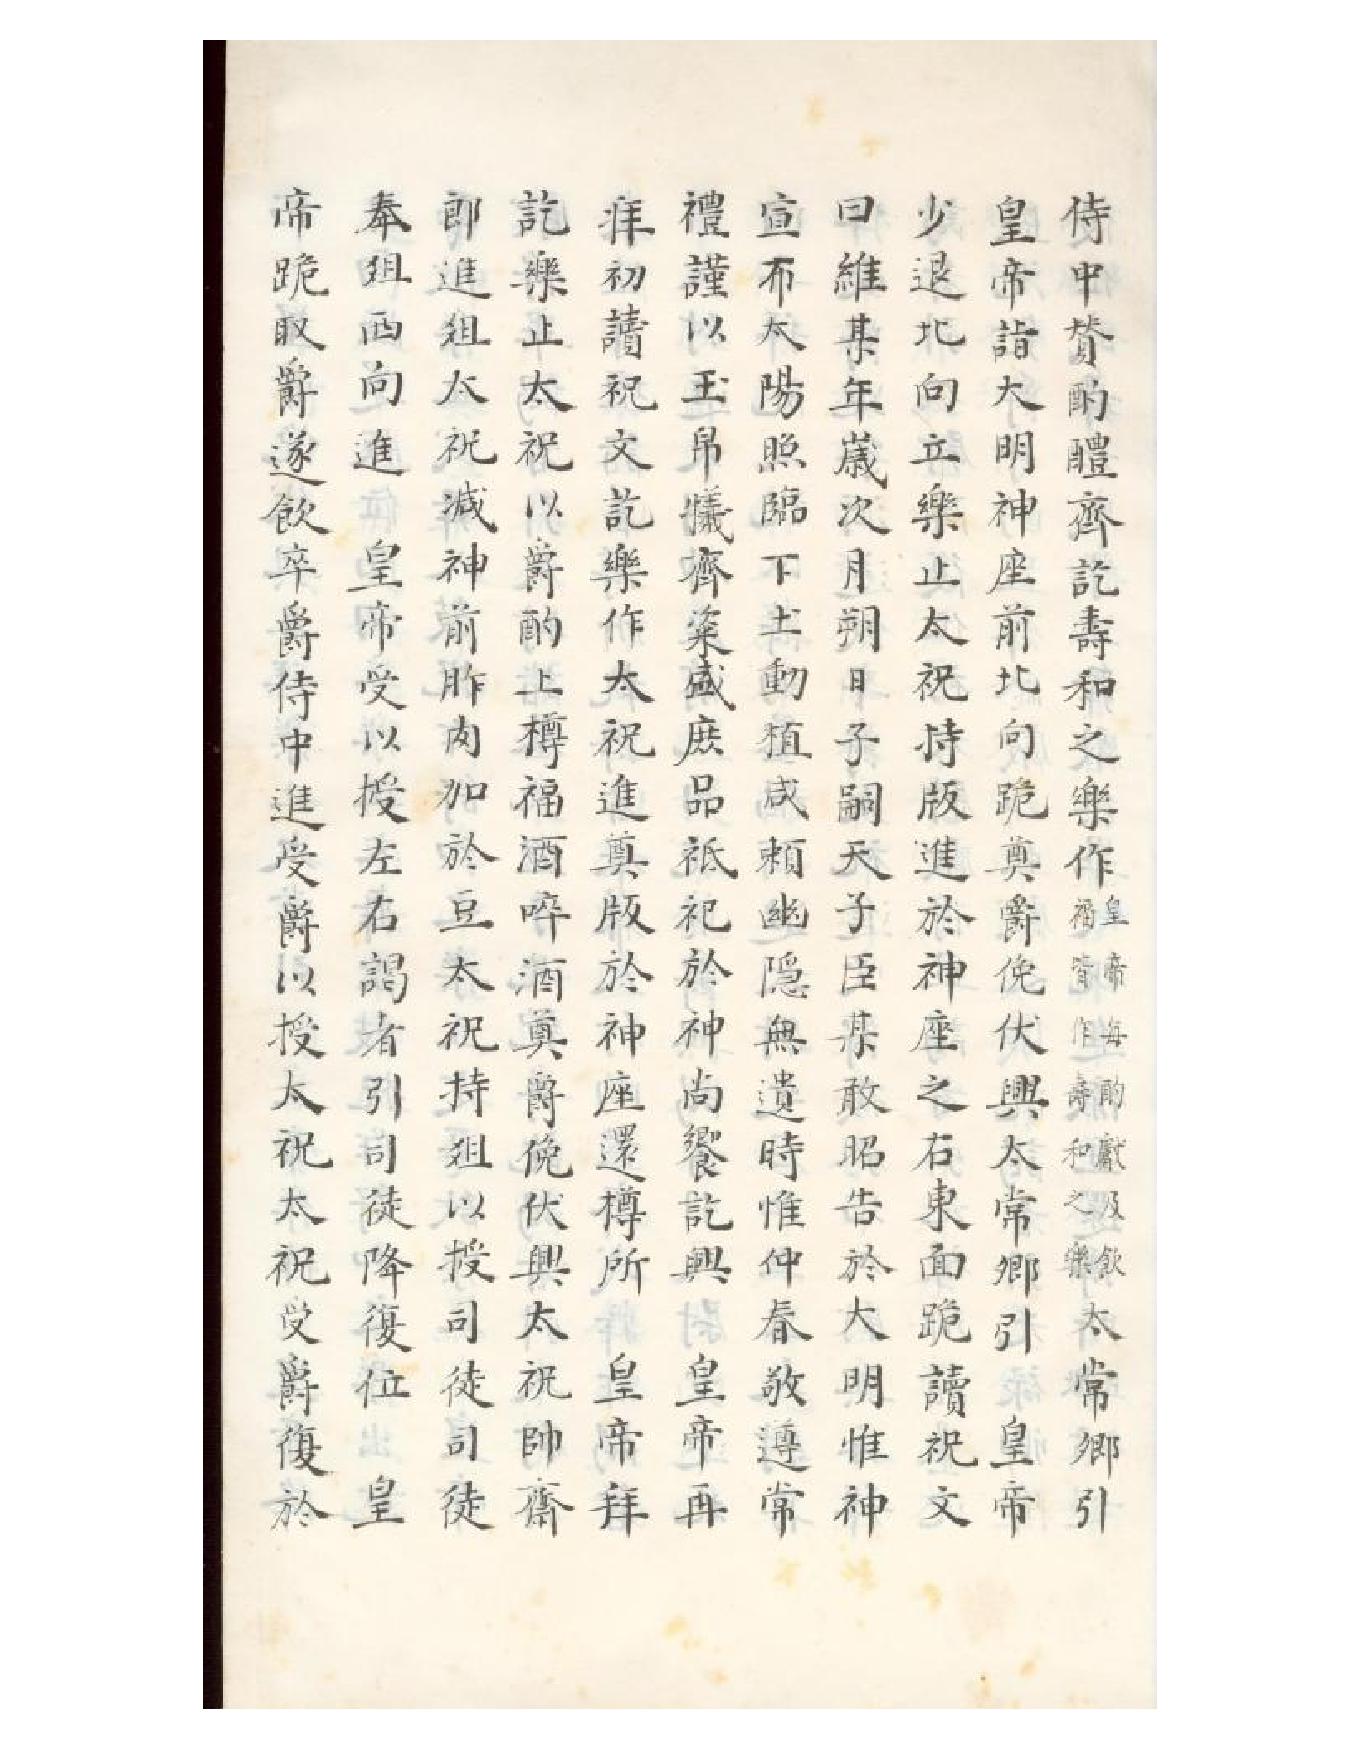 侍中贊酌醴齊訖壽和之樂作皇帝每酌獻及飲福皆作壽和之樂太常卿引
皇帝詣大明神座前北向跪奠爵俛伏興太常卿引皇帝
少退北向立樂止太祝持版進於神座之右東面跪讀祝文
曰維某年歲次月朔日子嗣天子臣某敢昭告於大明惟神
宣布太陽照臨下土動植咸賴幽隱無遺時惟仲春敬遵常
禮謹以玉帛犧齊粢盛庶品祗祀於神尚饗訖興皇帝再
拜初讀祝文訖樂作太祝進奠版於神座還樽所皇帝拜
訖樂止太祝以爵酌上樽福酒啐酒奠爵俛伏興太祝帥齋
郎進俎太祝減神前胙肉加於豆太祝持俎以授司徒司徒
奉俎西向進皇帝受以授左右謁者引司徒降復位皇
帝跪取爵遂飲卒爵侍中進受爵以授太祝太祝受爵復於